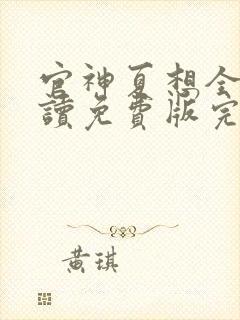 官神夏想全
讀免費版完
黃琪